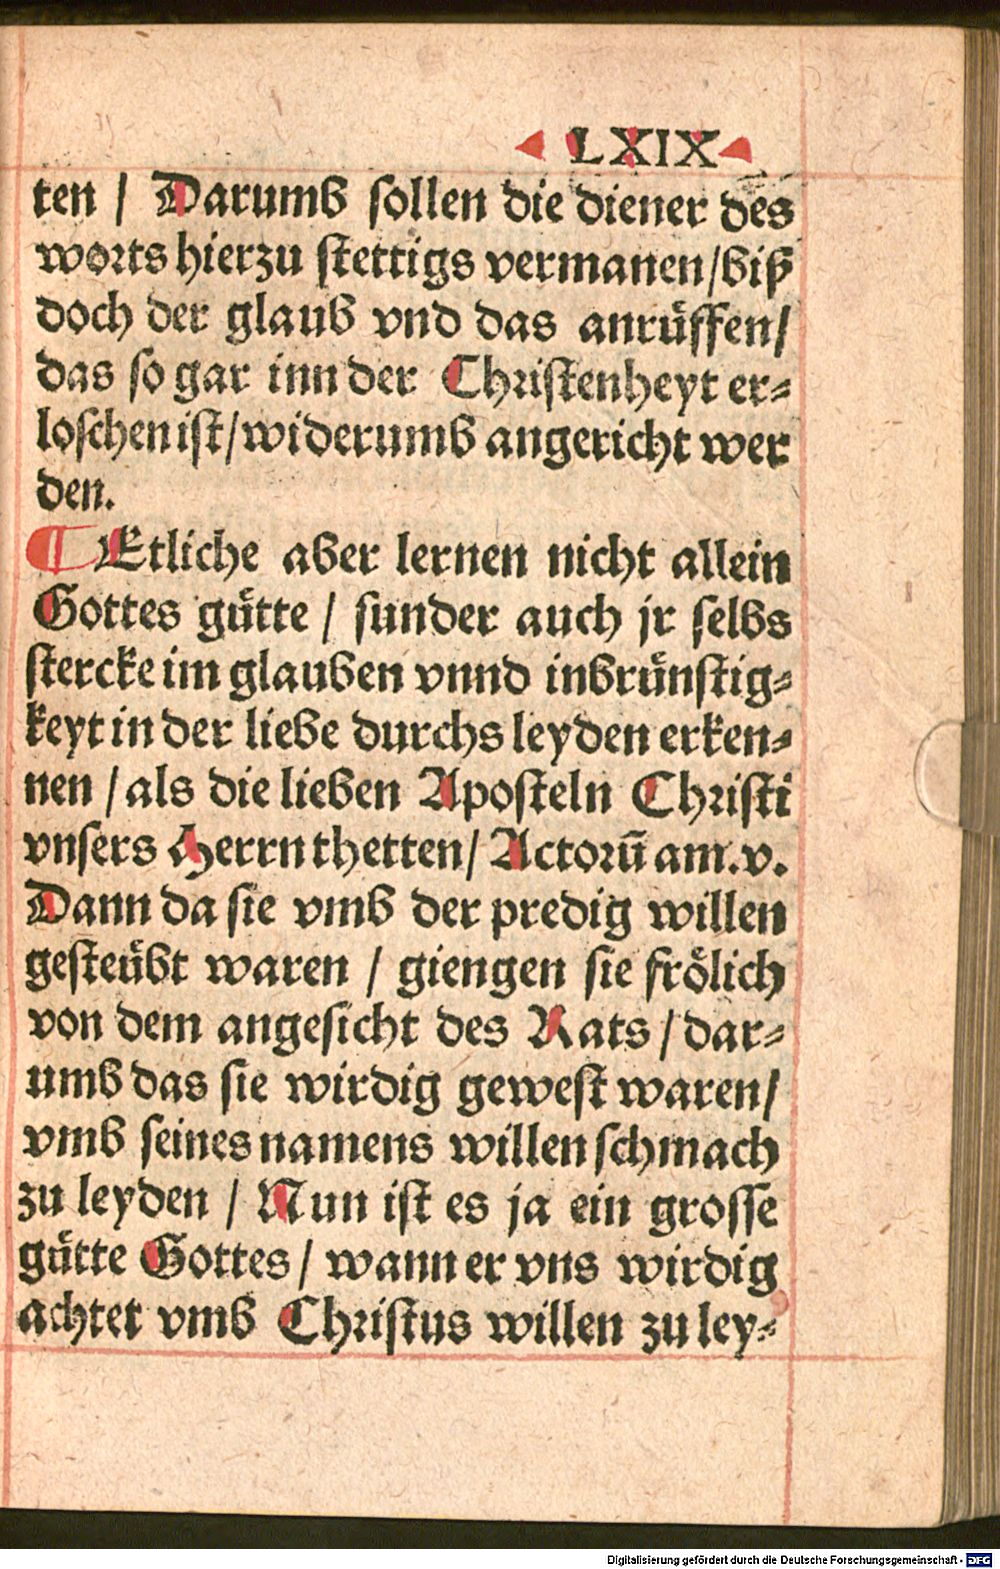 LXIX
ten / Darumb sollen die diener des
worts hierzu stettigs vermanen / biß
doch der glaub vnd das anrüffen /
das so gar inn der Christenheyt er⸗
loschen ist / widerumb angericht wer
den.
¶ Etliche aber lernen nicht allein
Gottes guͤtte / sunder auch jr selbs
stercke im glauben vnnd inbruͤnstig⸗
keyt in der liebe durchs leyden erken⸗
nen / als die lieben Aposteln Christi
vnsers Herrn thetten / Actorū am. v.
Dann da sie vmb der predig willen
gesteuͤbt waren / giengen sie froͤlich
von dem angesicht des Rats / dar⸗
umb das sie wirdig gewest waren /
vmb seines namens willen schmach
zu leyden / Nun ist es ja ein grosse
guͤtte Gottes / wann er vns wirdig
achtet vmb Christus willen zu ley⸗
Digitalisierung gefördert durch die Deutsche Forschungsgemeinschaft - DFG